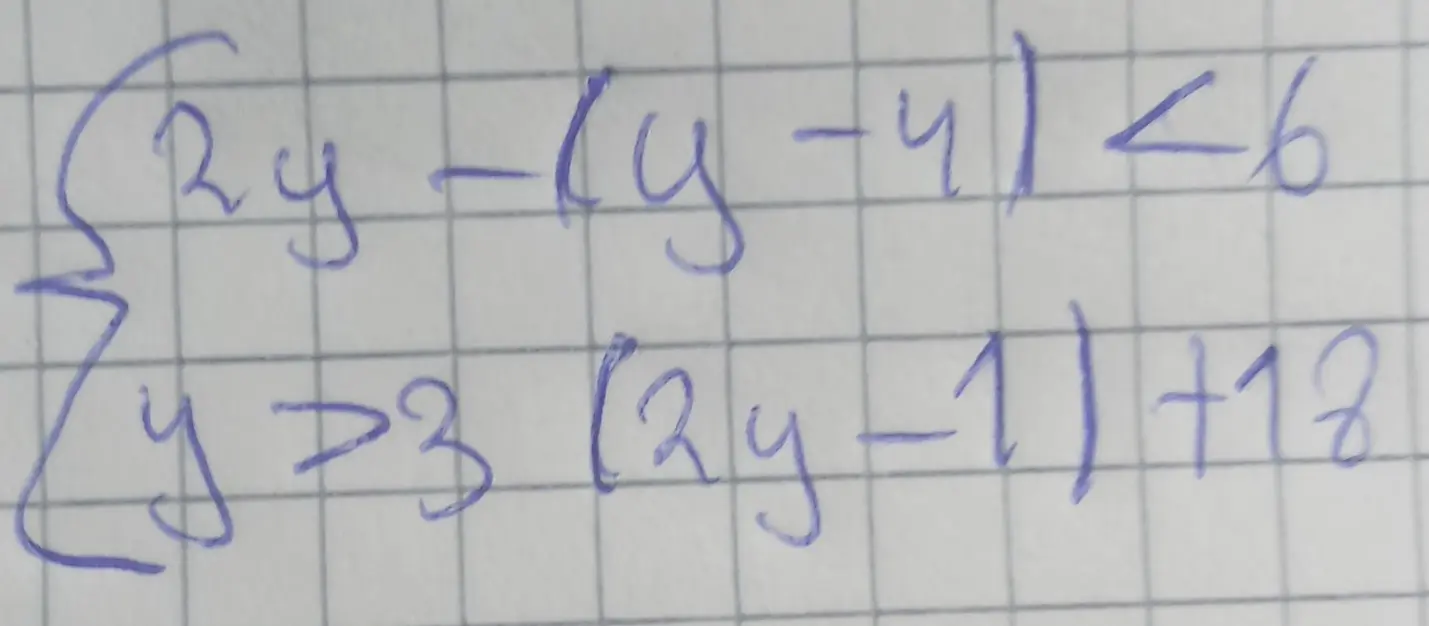 { 2y - (y - 4) < 6
y > 3 (2y - 1) + 18